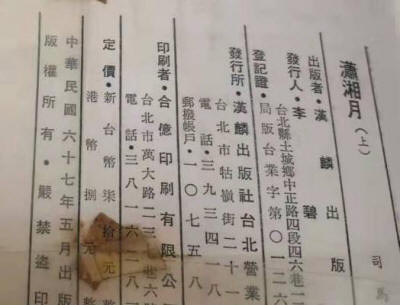 瀟湘月（上）
司馬
出版者・漢麟出版
發行人・李碧
台北縣土城鄉中正路四段四六巷二
登記證・局版台業字第〇一二六
發行所・漢麟出版社台北營業
台北市牯嶺街二十一
電話・三九三四一八
郵撥帳戶・一〇七五八
印刷者・合億印刷有限公
台北市萬大路二三
電話・三八一六二八
定價・新台幣柒拾元整
港幣捌元整
中華民國六十七年五月出版
版權所有・嚴禁盜印